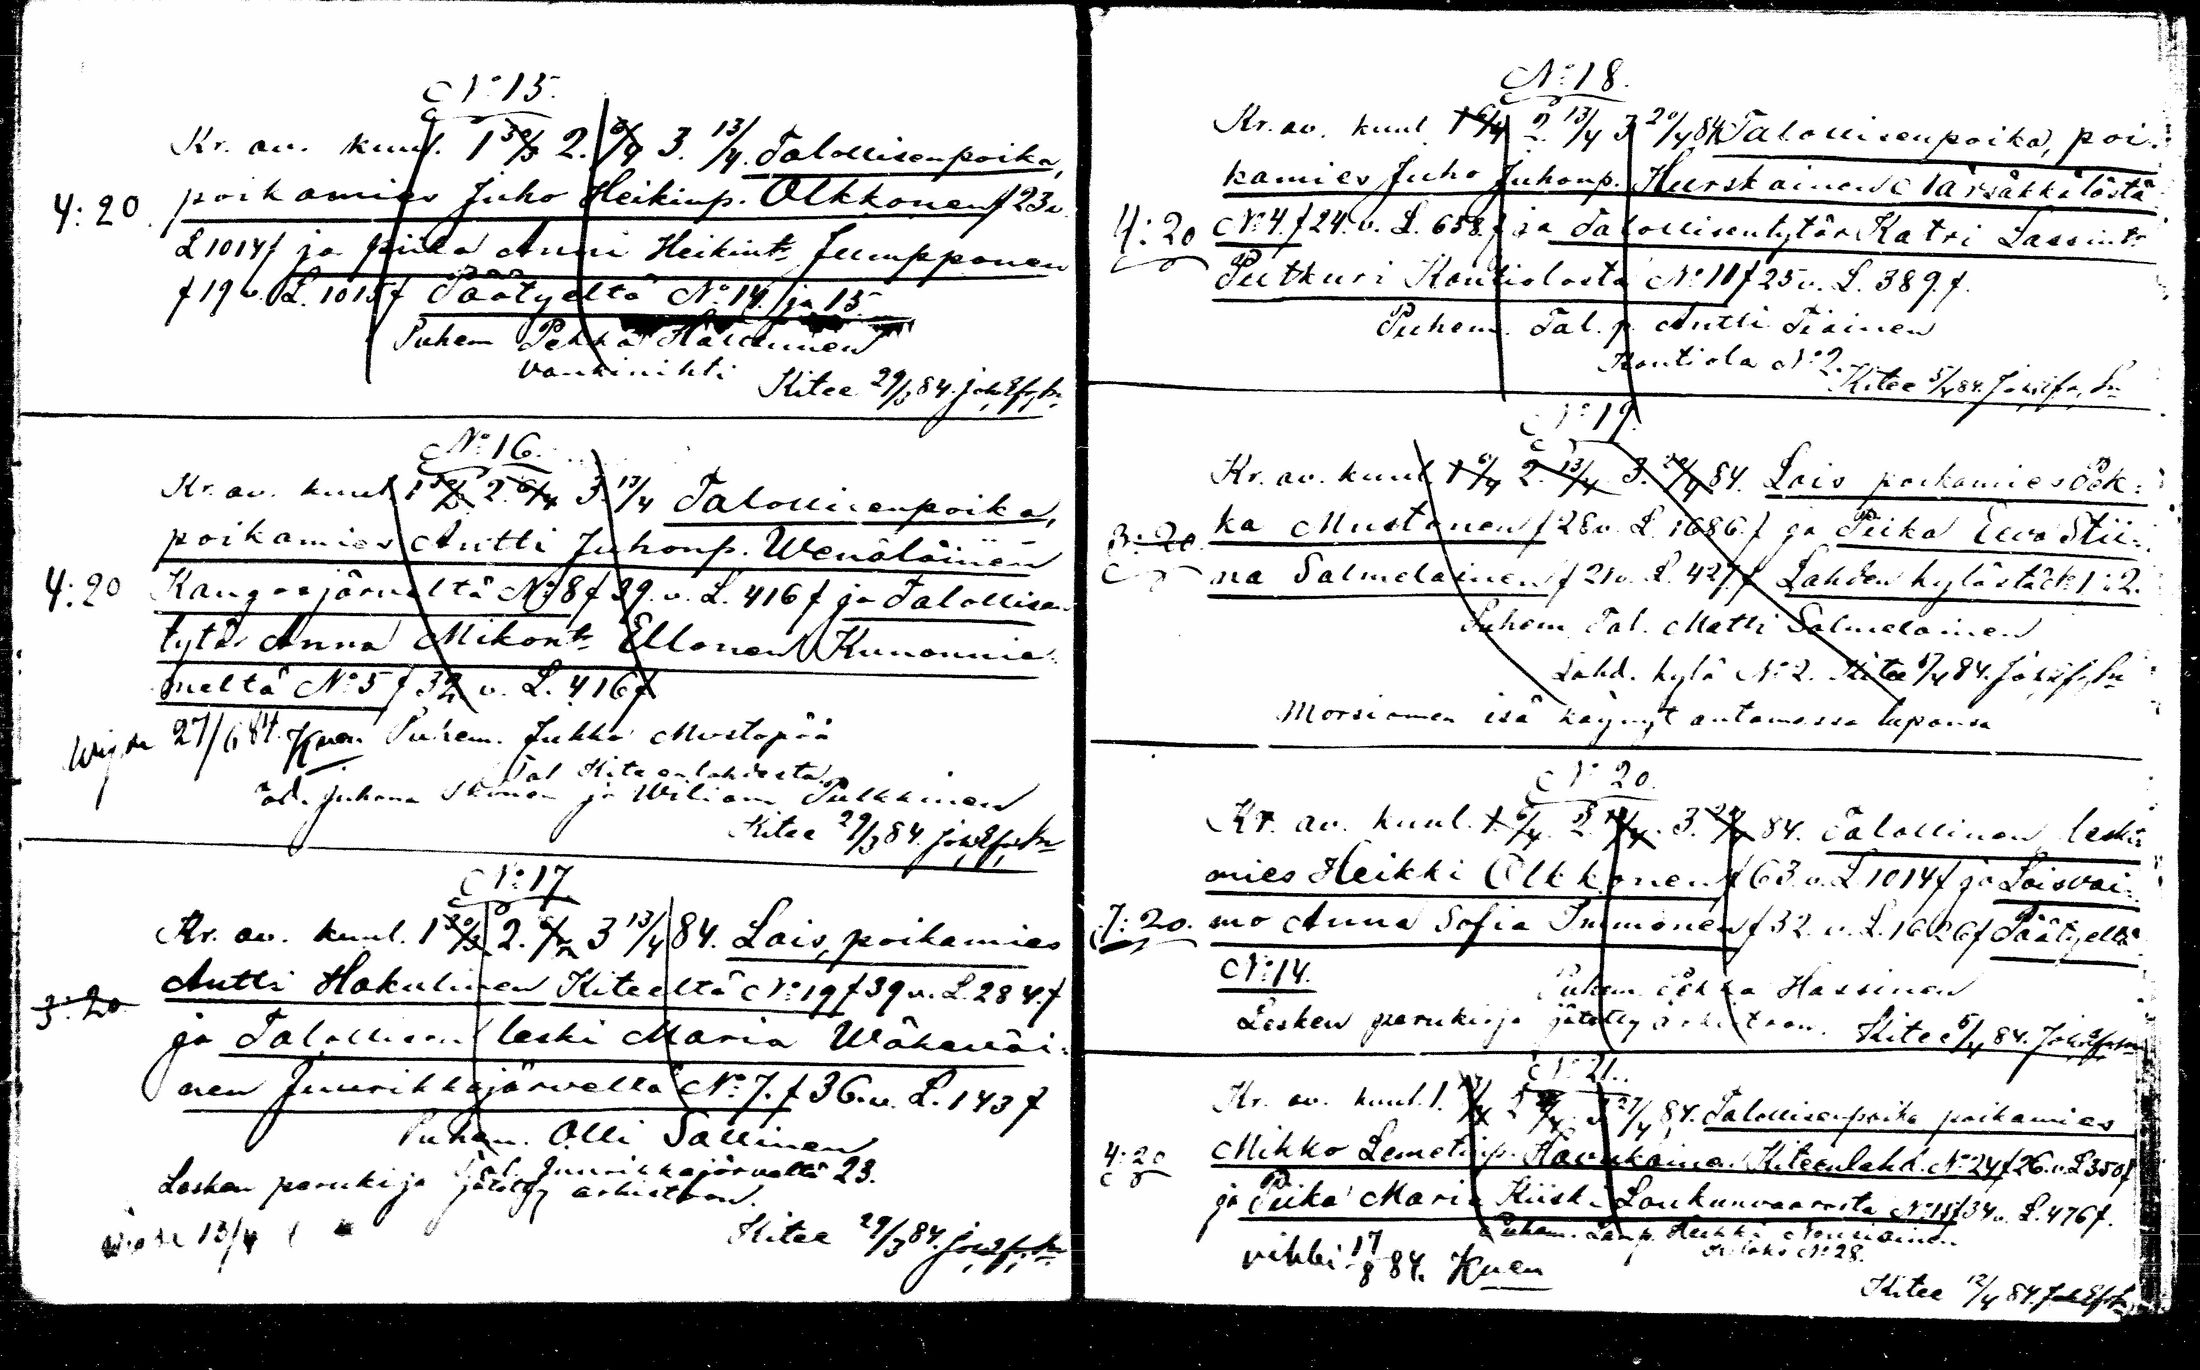 N:o 15.
Kr. av. kuul. 1 30/3 2. 6/4 3. 13/4. Talollisenpoika,
4:20. poikamies Juho Heikinp. Olkkonen f 23 v.
L 1014 f ja piika Anni Heikint. Jumpponen
f 19 v. L. 1015 f Päätyeltä N:o 14. ja 15.
Puhem Pekka
vankinihti
Kitee 29/3 84.
N:o 16.
Kr. av. kuul. 1 30/3 2. 6/4 3. 13/4 Talollisenpoika,
poikamies Antti Juhonp. Wenäläinen
4:20 Kangasjärveltä N:o 8 f 39. v. L. 416 f ja Talollisen
tytär Anna Mikont. Ellonen Kunonnie-
meltä N:o 5 f 32 v. L. 416 f
27/6 84. Kuen Puhem. Jukka Mustapää
Tal Kiteenlahdesta
tod. Juhana ja Wiliam Pulkkinen
Kitee 29/3 84.
N:o 17.
Kr. av. kuul. 1 30/3 2. 6/4 3 13/4 84. Lois, poikamies
Antti Hakulinen Kiteeltä N:o 19 f 39 v. L. 284. f
3:20
ja Talollisen leski Maria Wäkeväi-
nen Juurikkajärveltä N:o 7. f 36. v. L. 143 f
Puhem. Olli Sallinen
Tal. Juurikkajärveltä 23.
Lesken perukirja jätetty arkistoon.
13/4
Kitee 29/3 84.
N:o 18.
Kr. av. kuul. 1 6/4 2. 13/4 3 20/4 84 Talollisenpoika, poi-
kamies Juho Juhonp. Hurskainen Närsäkkälästä
4:20 N:o 4. f 24. v. L. 658. f ja Talollisentytär Katri Lassint.
Putkuri Kontiolasta N:o 11 f 25 v. L. 389. f.
Puhem. Tal. p. Antti Tiainen
Kontiola N:o 2.
Kitee 5/4 84.
N:o 19.
Kr. av. kuul. 1 6/4 2. 13/4 3. 20/4 84. Lois poikamies Pek-
3:20. ka Mustonen f 28 v. L. 1686. f ja Piika Eeva Stii-
na Salmelainen f 21 v. L. 427. f Lahden kylästä N:o 1:2.
Puhem. Tal. Matti Salmelainen
Lahd. kylä N:o 2. Kitee 5/4 84.
Morsiamen isä käynyt antamassa lupansa
N:o 20.
Kr. av. kuul. 1. 6/4. 2. 13/4. 3. 20/4 84. Talollinen, leski-
mies Heikki Olkkonen f 63. v. L 1014 f ja Loisvai-
7:20. mo Anna Sofia Immonen f 32. v. L. 1626 f Päätyeltä
N:o 14. Puhem. Pekka Hassinen
Lesken perukirja jätetty arkistoon. Kitee 5/4 84.
N:o 21.
Kr. av. kuul. 1. 27/4 84. Talollisenpoika poikamies
4:20 Mikko Lemetinp. Havukainen Kiteenlahd. N:o 24 f 26. v. L 350 f
ja Piika Maria Kiiski Loukunvaarasta N:o 11 f 34 v. L. 476 f.
Puhem. Lamp. Heikki Nousiainen
N:o 28.
vihki 17/8 84. Kuen
Kitee 12/4 84.